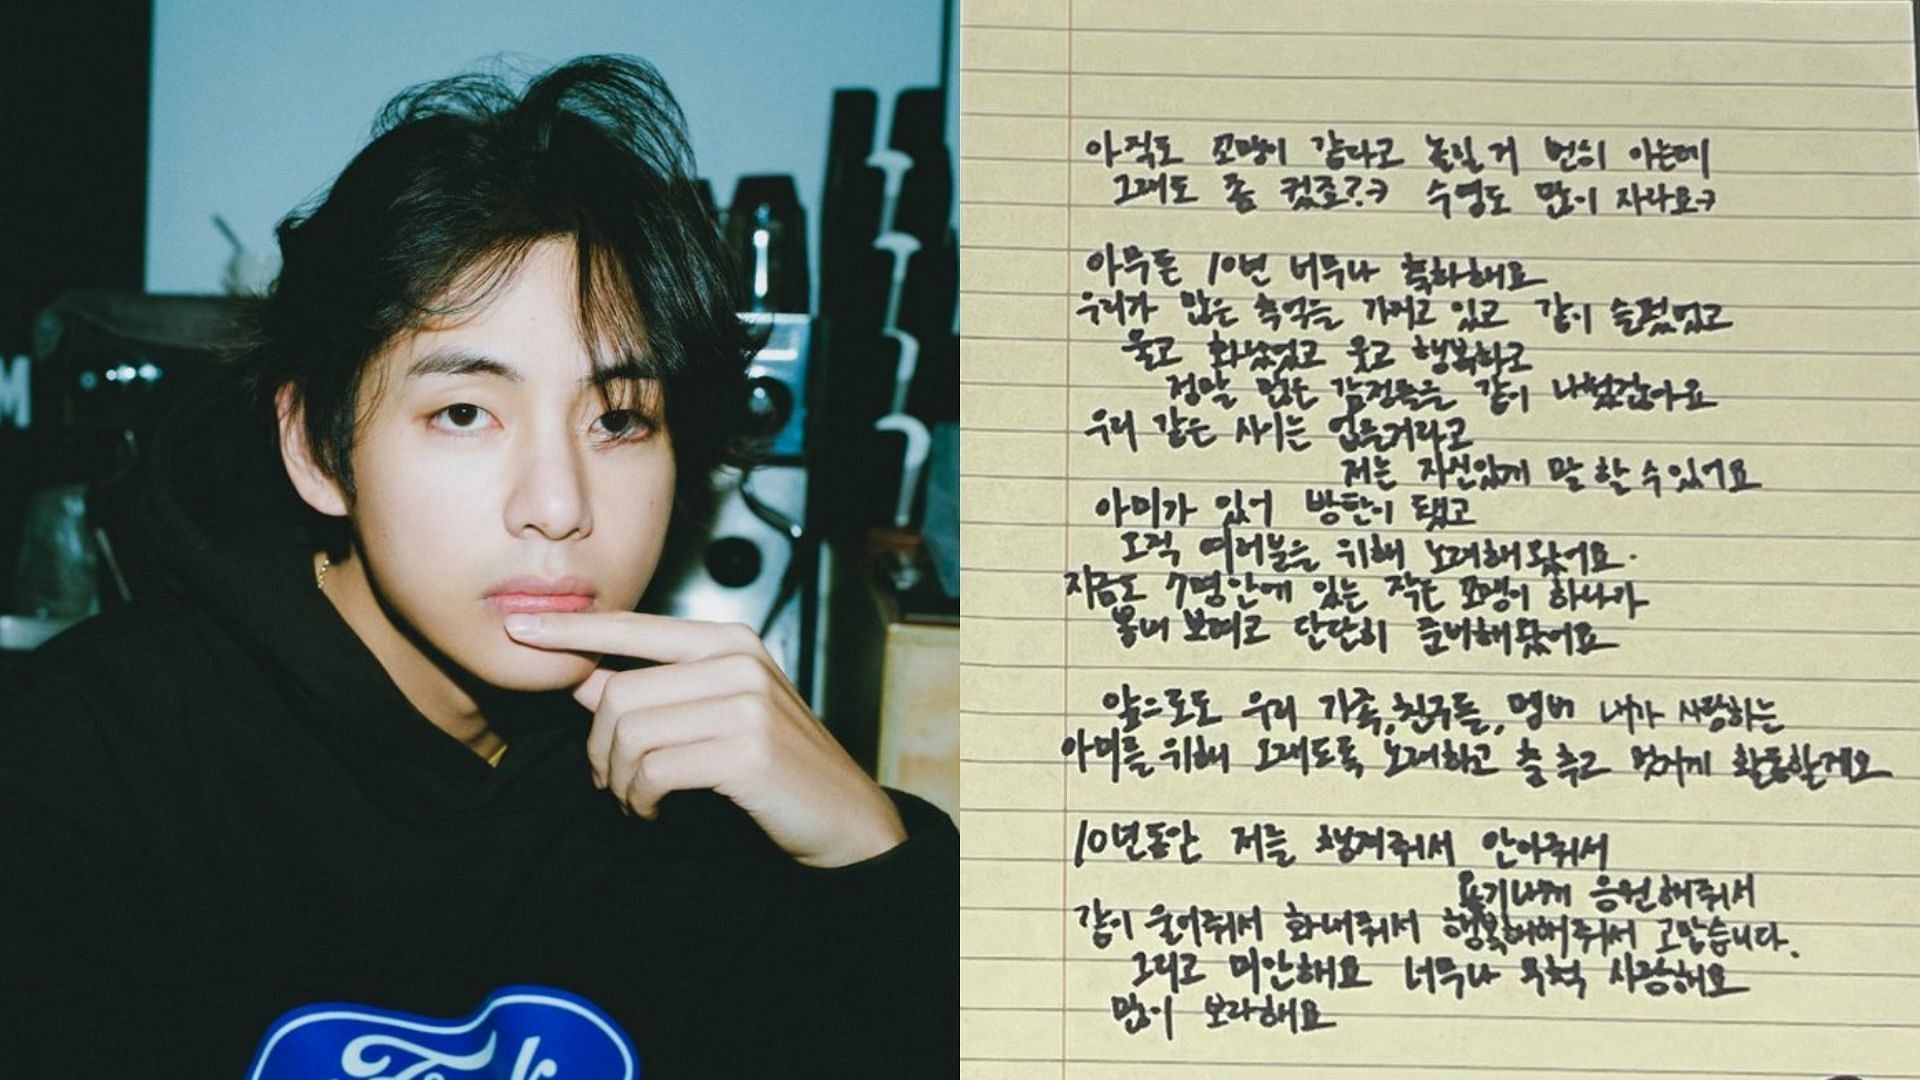 M
아직도 꼬맹이 같다고 놀릴거 뻔히 아는데
그래도 좀 컸죠?ㅋ 수염도 많이 자라요ㅋ
아무튼 10년 너무나 축하해요
우리가 많은 추억을 가지고 있고 같이 슬펐었고
울고 화났었고 웃고 행복하고
정말 많은 감정들을 같이 나눴잖아요
우리 같은 사이는 없을거라고
저는 자신있게 말할 수 있어요
아미가 있어 방탄이 됐고
오직 여러분을 위해 노래해왔어요.
지금도 7명안에 있는 작은 꼬맹이 하나가
뽐내 보려고 단단히 준비해놨어요
앞으로도 우리 가족,친구들,멤버 내가 사랑하는
아미를 위해 오래도록 노래하고 춤 추고 멋지게 활동할게요
10년동안 저를 챙겨줘서 안아줘서
용기나게 응원해줘서
같이 울어줘서 화내줘서 행복해해줘서 고맙습니다.
그리고 미안해요 너무나 무척 사랑해요
많이 보라해요